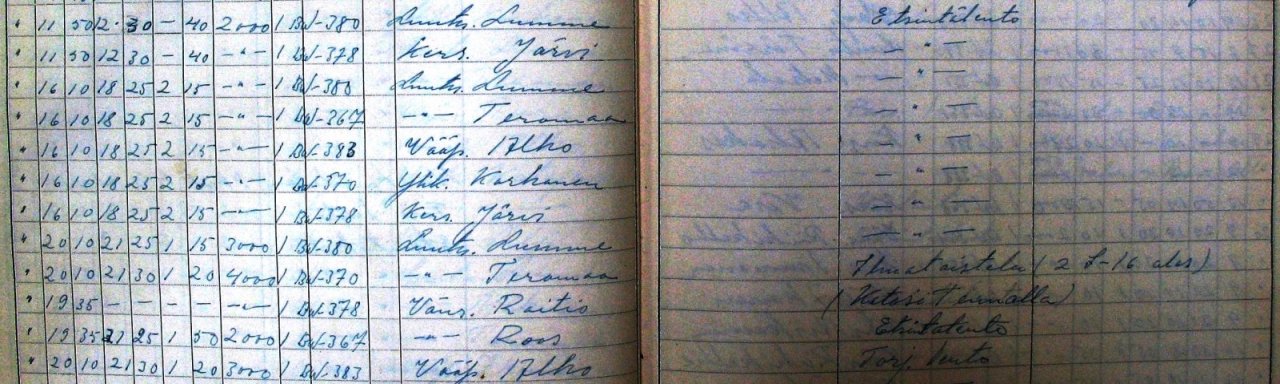 " 11 50 12 30 — 40 2000 1 BW-380 Luutn. Lumme Etsintälento
" 11 50 12 30 — 40 —"— 1 BW-378 Kers. Järvi — " —
" 16 10 18 25 2 15 —"— 1 BW-380 Luutn. Lumme — " —
" 16 10 18 25 2 15 —"— 1 BW-367 —"— Teromaa — " —
" 16 10 18 25 2 15 —"— 1 BW-383 Vääp. Alho — " —
" 16 10 18 25 2 15 —"— 1 BW-370 Ylik. Korhonen — " —
" 16 10 18 25 2 15 —"— 1 BW-378 Kers. Järvi — " —
" 20 10 21 25 1 15 3000 1 BW-380 Luutn. Lumme — " —
" 20 10 21 30 1 20 4000 1 BW-370 —"— Teromaa Ilmataistelu (2 I-16 alas)
" 19 35 — — — — —"— 1 BW-378 Vänr. Raitio
" 19 35 21 25 1 50 2000 1 BW-367 —"— Roos Etsintälento
" 20 10 21 30 1 20 3000 1 BW-383 Vääp. Alho Torj. lento